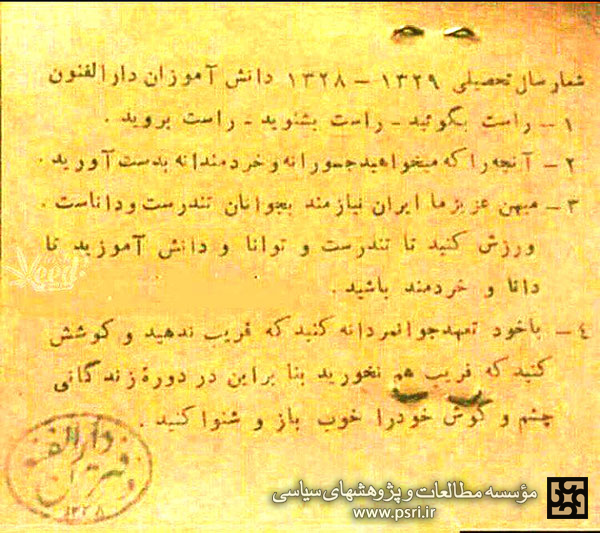 شعار سال تحصیلی ۱۳۲۹ – ۱۳۲۸ دانش آموزان دارالفنون
۱ – راست بگوئید – راست بشنوید – راست بروید .
۲ – آنچه را که میخواهید جسورانه و خردمندانه بدست آورید .
۳ – میهن عزیز ما ایران نیازمند بجوانان تندرست و داناست .
ورزش کنید تا تندرست و توانا و دانش آموزید تا
دانا و خردمند باشید .
٤ – باخود تعهد جوانمردانه کنید که فریب ندهید و کوشش
کنید که فریب هم نخورید بنا براین در دورۀ زندگانی
چشم و گوش خودرا خوب باز و شنوا کنید .
دارالفنون
۱۳۲۸
مؤسسه مطالعات و پژوهشهای سیاسی
www.psri.ir